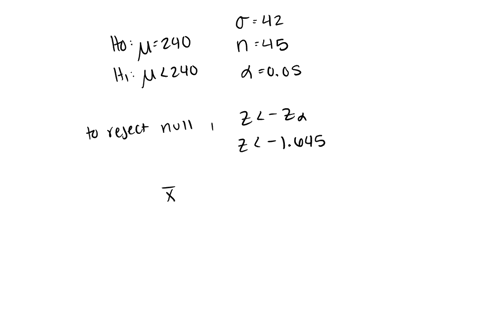 σ=42
H0: μ=240 n=45
H1: μ<240 α=0.05
to reject null, z<-zα
z<-1.645
x̄